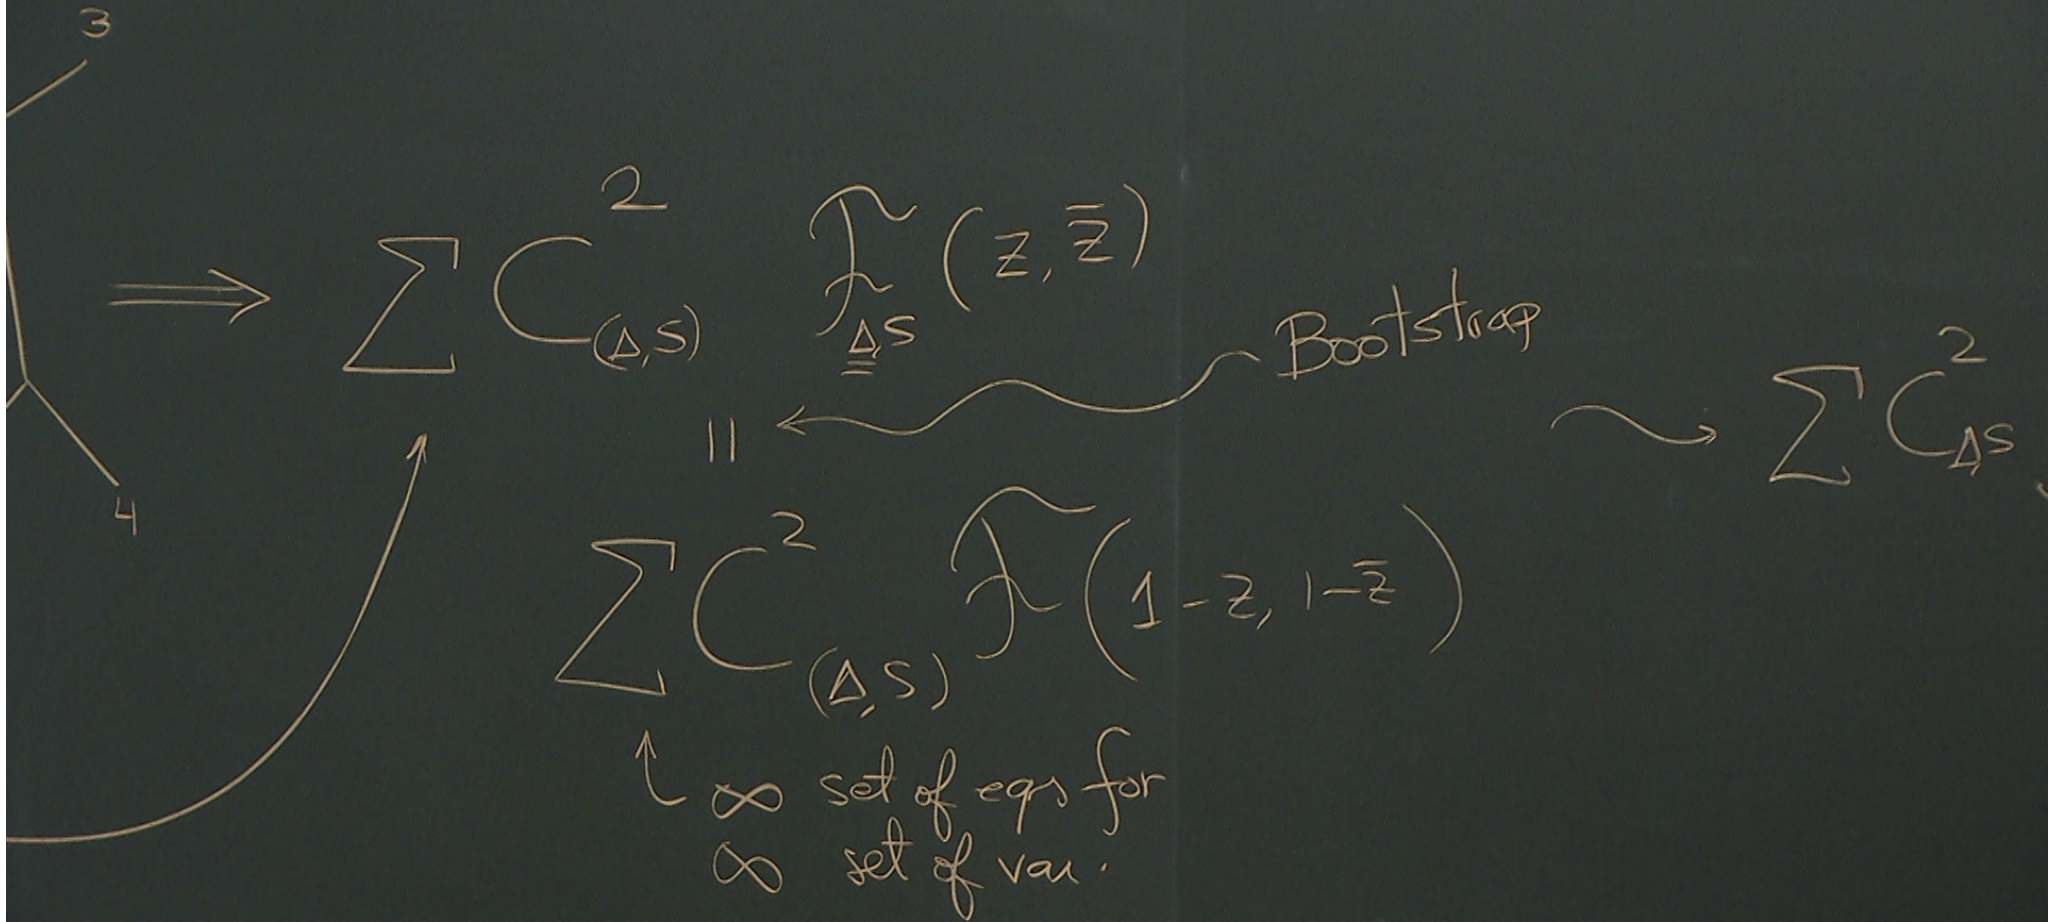 3
⟹ ∑ C²_(Δ,S) ℱ_Δ,S (z, z̄)
Bootstrap
=
∑ C²_Δ,S
4
∑ C²_(Δ,S) ℱ (1-z, 1-z̄)
∞ set of eqs for
∞ set of var.